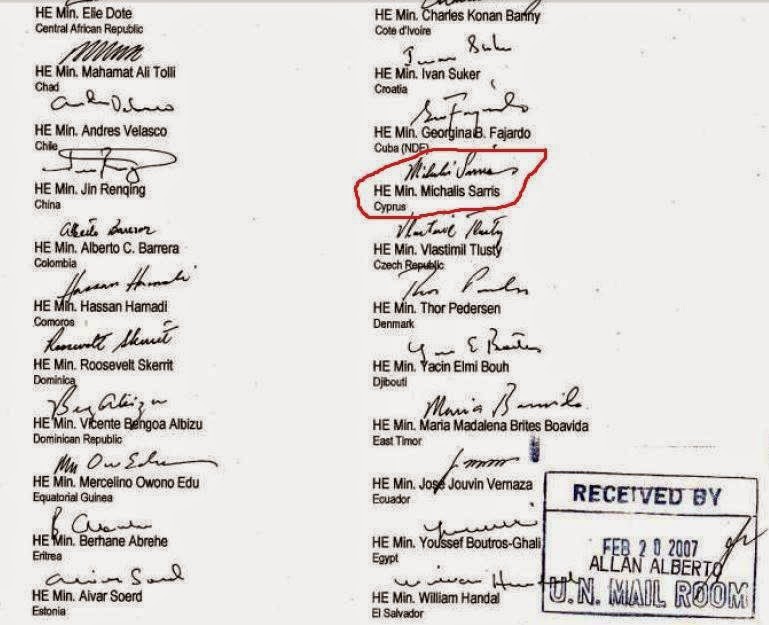 HE Min. Elie Dote
Central African Republic
HE Min. Mahamat Ali Tolli
Chad
HE Min. Andres Velasco
Chile
HE Min. Jin Renqing
China
Alberto Barrera
HE Min. Alberto C. Barrera
Colombia
Hassan Hamadi
HE Min. Hassan Hamadi
Comoros
Roosevelt Skerrit
HE Min. Roosevelt Skerrit
Dominica
HE Min. Vicente Bengoa Albizu
Dominican Republic
HE Min. Mercelino Owono Edu
Equatorial Guinea
HE Min. Berhane Abrehe
Eritrea
Aivar Soerd
HE Min. Aivar Soerd
Estonia
HE Min. Charles Konan Banny
Cote d'Ivoire
Ivan Suker
HE Min. Ivan Suker
Croatia
HE Min. Georgina B. Fajardo
Cuba (NDF)
Michalis Sarris
HE Min. Michalis Sarris
Cyprus
Vlastimil Tlusty
HE Min. Vlastimil Tlusty
Czech Republic
HE Min. Thor Pedersen
Denmark
HE Min. Yacin Elmi Bouh
Djibouti
HE Min. Maria Madalena Brites Boavida
East Timor
HE Min. José Jouvin Vernaza
Ecuador
HE Min. Youssef Boutros-Ghali
Egypt
HE Min. William Handal
El Salvador
RECEIVED BY
FEB 20 2007
ALLAN ALBERTO
U.N. MAIL ROOM